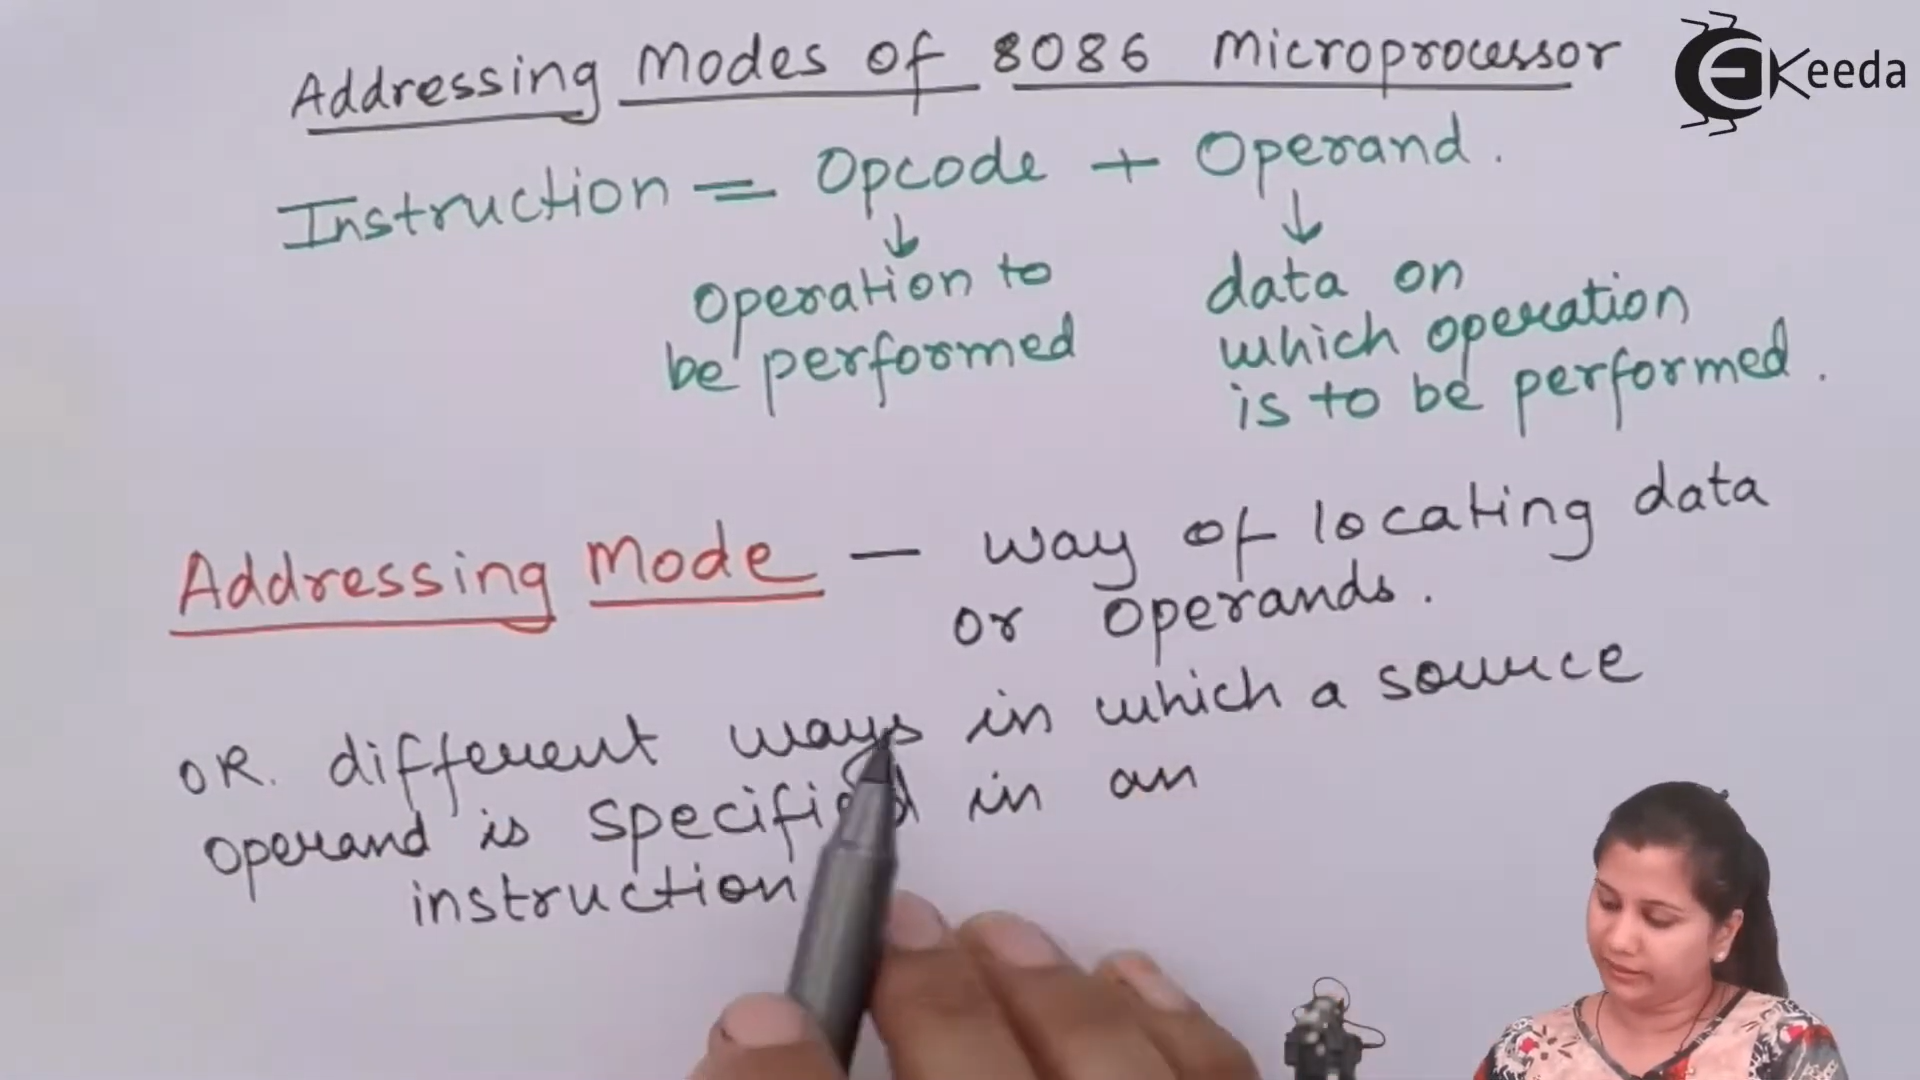 Addressing Modes of 8086 Microprocessor
EKeeda
Instruction = Opcode + Operand.
↓ ↓
Operation to
be performed
data on
which operation
is to be performed.
Addressing Mode — Way of locating data
or Operands.
OR. different ways in which a source
operand is specified in an
instruction